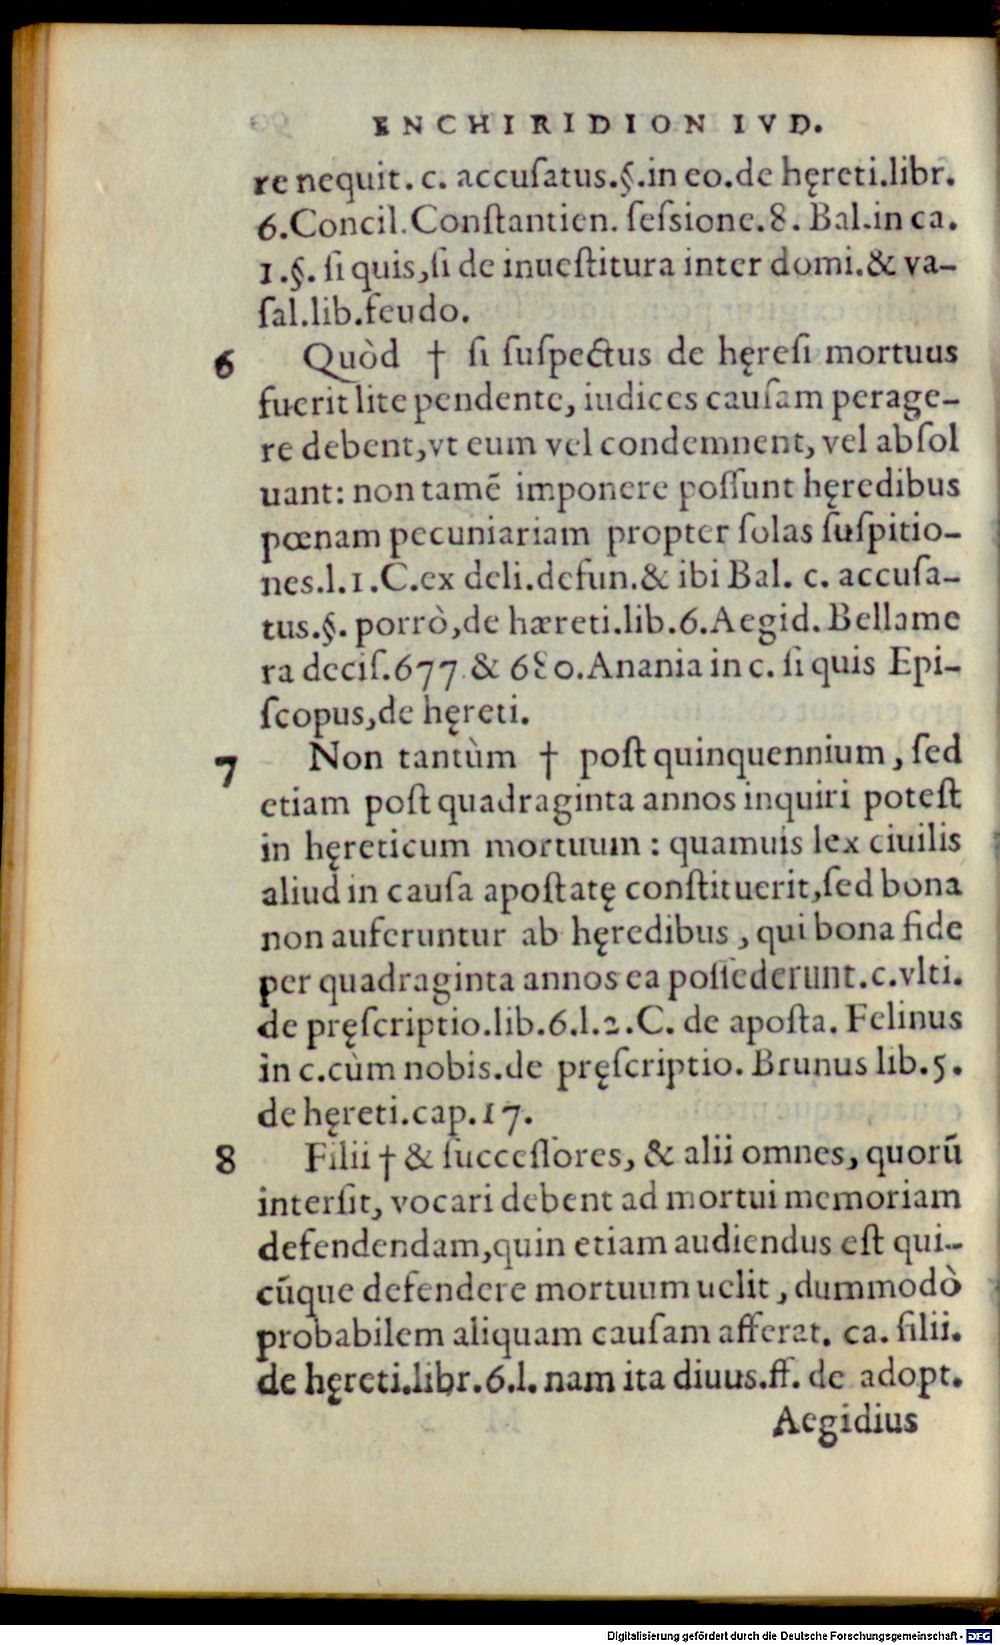 ENCHIRIDION IVD.
re nequit. c. accuſatus.§.in eo.de hęreti.libr.
6.Concil.Conſtantien. ſeſsione.8. Bal.in ca.
1.§. ſi quis,ſi de inueſtitura inter domi.& va-
ſal.lib.feudo.
6 Quòd † ſi ſuſpectus de hęreſi mortuus
fuerit lite pendente, iudices cauſam perage-
re debent,vt eum vel condemnent, vel abſol
uant: non tamē imponere poſſunt hęredibus
pœnam pecuniariam propter ſolas ſuſpitio-
nes.l.1.C.ex deli.defun.& ibi Bal. c. accuſa-
tus.§. porrò,de hæreti.lib.6.Aegid. Bellame
ra deciſ.677 & 680.Anania in c. ſi quis Epi-
ſcopus,de hęreti.
7 Non tantùm † poſt quinquennium, ſed
etiam poſt quadraginta annos inquiri poteſt
in hęreticum mortuum : quamuis lex ciuilis
aliud in cauſa apoſtatę conſtituerit,ſed bona
non auferuntur ab hęredibus , qui bona fide
per quadraginta annos ea poſſederunt.c.vlti.
de pręſcriptio.lib.6.l.2.C. de apoſta. Felinus
in c.cùm nobis.de pręſcriptio. Brunus lib.5.
de hęreti.cap.17.
8 Filii † & ſucceſſores, & alii omnes, quorū
interſit, vocari debent ad mortui memoriam
defendendam,quin etiam audiendus eſt qui-
cūque defendere mortuum uelit , dummodò
probabilem aliquam cauſam afferat. ca. filii.
de hęreti.libr.6.l. nam ita diuus.ff. de adopt.
Aegidius
Digitalisierung gefördert durch die Deutsche Forschungsgemeinschaft - DFG